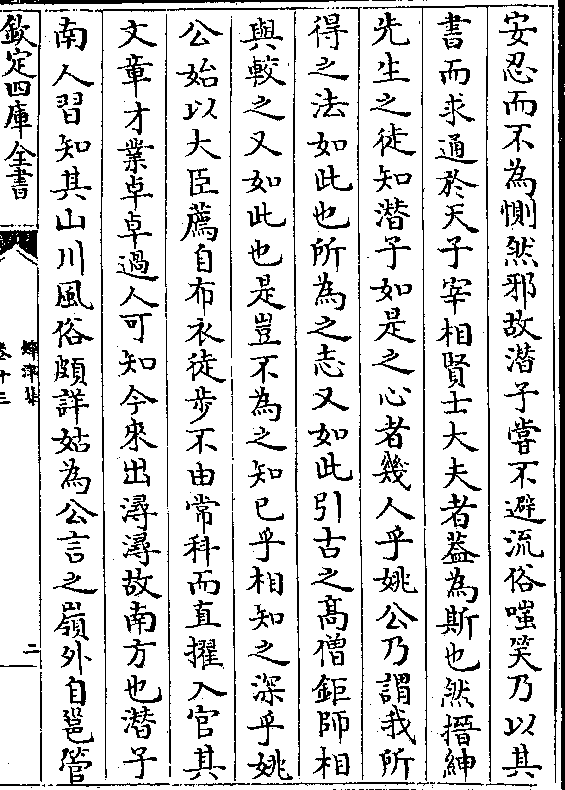 安忍而不為惻然邪故潜子嘗不避流俗嗤笑乃以其
書而求通於天子宰相賢士大夫者葢為斯也然搢紳
先生之徒知潜子如是之心者幾人乎姚公乃謂我所
得之法如此也所為之志又如此引古之髙僧鉅師相
與較之又如此也是豈不為之知已乎相知之深乎姚
公始以大臣薦自布衣徒步不由常科而直擢入官其
文章才業卓卓過人可知今來出潯潯故南方也潜子
南人習知其山川風俗頗詳姑為公言之嶺外自邕管
欽定四庫全書
鐔津集
卷十三
二